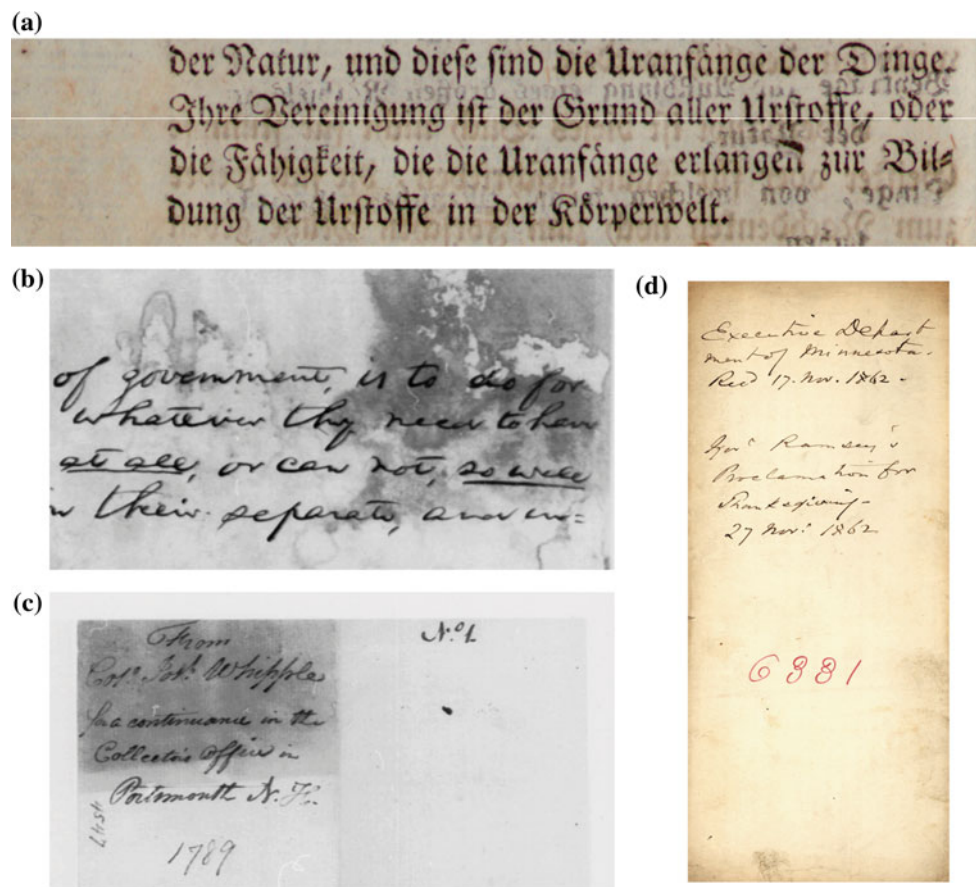 (a)
der Natur, und diese sind die Uranfänge der Dinge.
Ihre Vereinigung ist der Grund aller Urstoffe, oder
die Fähigkeit, die die Uranfänge erlangen zur Bil=
dung der Urstoffe in der Körperwelt.
(b)
of government, is to do for
whatever they need to have
at all, or can not, so well
in their separate, and in=
(c)
From
Colo. Jos. Whipple
for a continuance in the
Collector's Office in
Portsmouth N. H.
1789
No. 1
(d)
Executive Depart
ment of Minnesota.
Recd 17. Nov. 1862 -
Ramsey's
Proclamation for
Thanksgiving -
27 Nov: 1862
6331